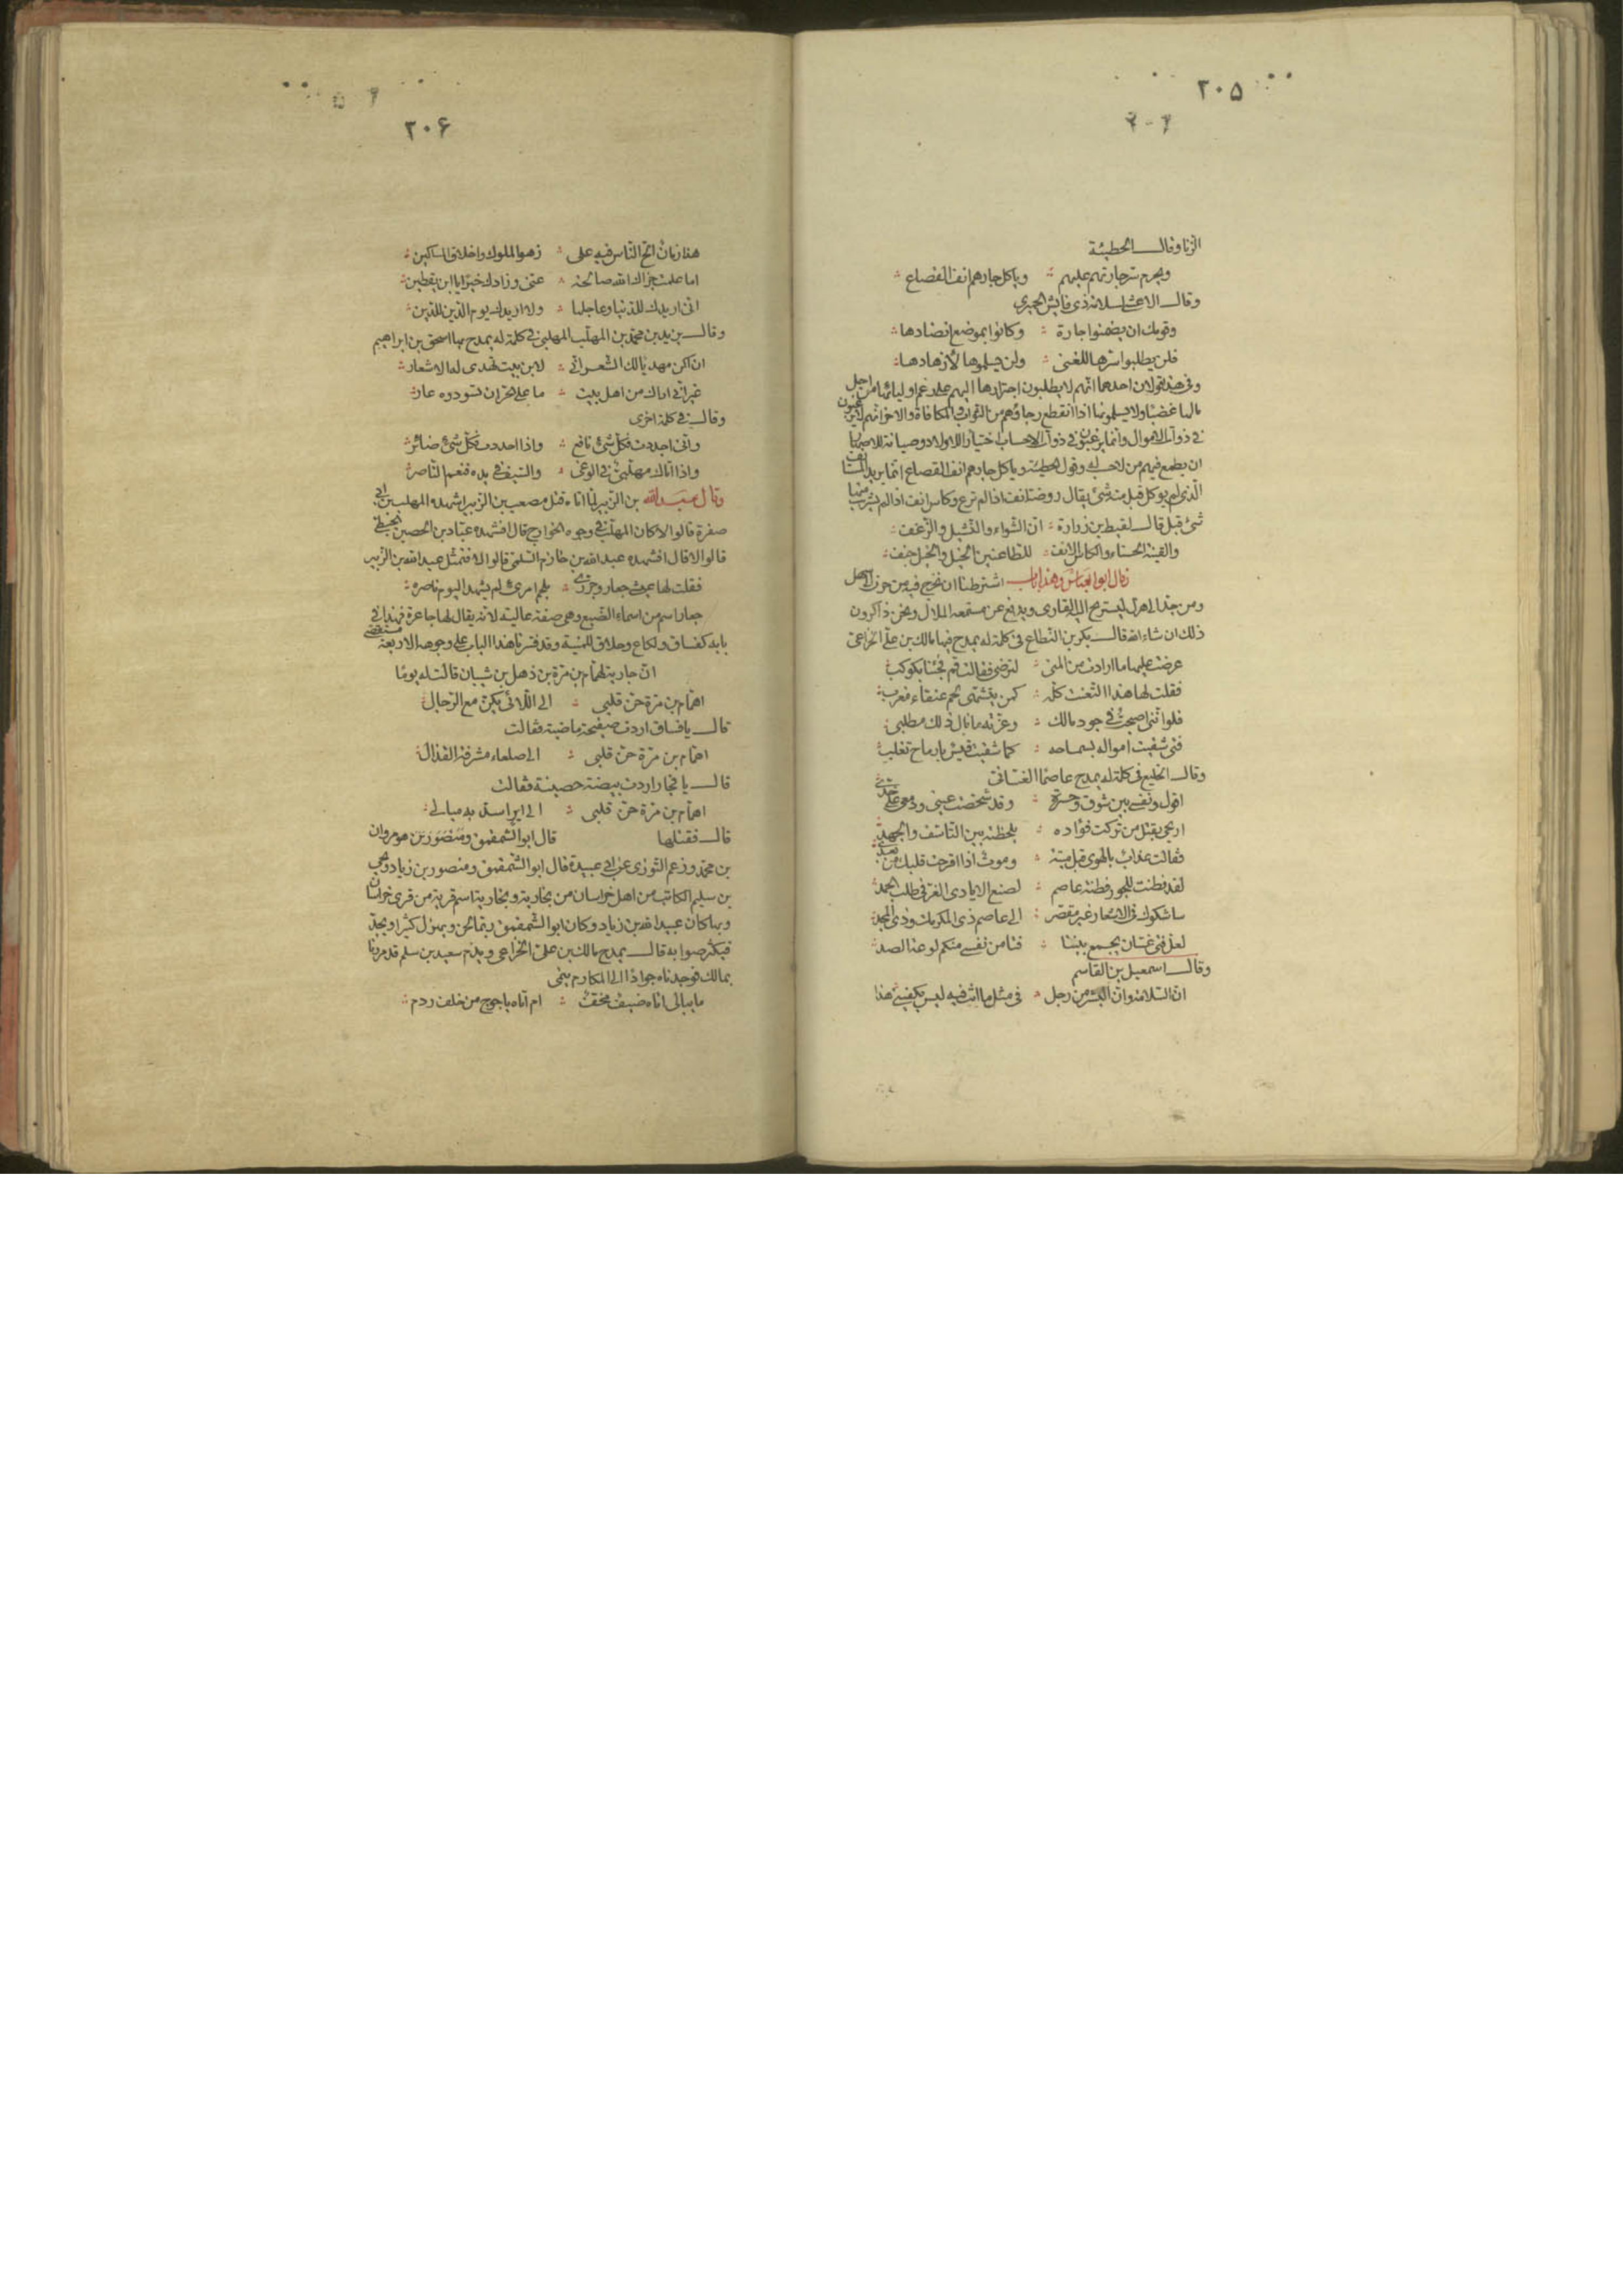 ٢٠۵
الزنا وقالــ الحطيئة
ويحرم سرّ جارتهم عليهم ؞ وياكل جارهم انف القصاع ؞
وقالــ الاعشى لسلامة ذى فايش الحميرى
وقومك ان يضمنوا جارة ؞ وكانوا بموضع انضادها ؞
فلن يطلبوا سرّها للغنى ؞ ولن يسلموها لأزهادها ؞
وفى هذا قولان احدهما انهم لا يطلبون اجترارها اليهم على رغم اوليائها من اجل
مالها غصبًا ولا يسلمونها اذا انقطع رجاؤهم من الثواب والمكافاة والاخر انهم لا يرغبون
فى ذوات الاموال وانما يرغبون فى ذوات الاحساب اختيارا للاولاد وصيانة للاصهار
ان يطمع فيهم من لا حسب له وقول الحطيئة وياكل جارهم انف القصاع انما يريد المستانف
الّذى لم يوكل قبل منه شئ يقال روضة انف اذا لم ترع وكاس انف اذا لم يشرب منها
شئ قبل قالــ لقيط بن زرارة ؞ انّ الشواء والنّشيل والرّغف ؞
والقينة الحسناء والكاس الانف ؞ للطاعنين الخيل والخيل جنف ؞
قال ابو العباس وهذا بابــ اشترطنا ان نخرج فيه من حزن الى سهل
ومن جدّ الى هزل ليستريح اليه القارى ويدفع عن مستمعه الملال ونحن ذاكرون
ذلك ان شاء الله قالــ بكر بن النّطاح فى كلمة له يمدح فيها مالك بن علىّ الخزاعىّ
عرضت عليها ما ارادت من المنى ؞ لترضى فقالت قم فجئنا بكوكب ؞
فقلت لها هذا التّعنّت كلّه ؞ كمن يتشهّى لحم عنقاء مغرب ؞
فلو انّنى اصبحت فى جود مالك ؞ وعزّته ما نال ذلك مطلبى ؞
فتى شقيت امواله بسماحه ؞ كما شقيت قيس بارماح تغلب ؞
وقالــ الخليع فى كلمة له يمدح عاصمًا الغسّانى
اقول ونفسى بين شوق وحسرة ؞ وقد شخصت عينى ودمعى على خدّى ؞
اريحى بقتل من تركت فؤاده ؞ بلحظته بين التاسّف والجهد ؞
فقالت عذاب بالهوى قبل ميتة ؞ وموت اذا اقرحت قلبك من بعد ؞
لقد فطنت للجور فطنة عاصم ؞ لصنع الايادى الغرّ فى طلب الحمد ؞
ساشكوك فى الاشعار غير مقصّر ؞ الى عاصم ذى المكرمات وذى المجد ؞
لعلّ فتى غسّان يجمع بيننا ؞
وقالــ اسمعيل بن القاسم
انّ السّلام وانّ البشر من رجل ؞ فى مثل ما انت فيه ليس يكفينى
٢٠۶
هذا زمان الحّ النّاس فيه على ؞ زهو الملوك واخلاق المساكين ؞
اما علمت جزاك الله صالحة ؞ عنّى وزادك خيرًا يا ابن يقطين ؞
انّى اريدك للدّنيا وعاجلها ؞ ولا اريدك يوم الدّين للدّين ؞
وقالــ يزيد بن محمّد بن المهلّب المهلّبى فى كلمة له يمدح بها اسحق بن ابراهيم
ان اكن مهديا لك الشعر انّى ؞ لابن بيت تهدى له الاشعار ؞
غير انّى اراك من اهل بيت ؞ ما على الحرّ ان تسودوه عار ؞
وقالــ فى كلمة اخرى
واذا جددت فكلّ شئ نافع ؞ واذا حددت فكلّ شئ ضائر ؞
واذا اتاك مهلّبىّ فى الوغى ؞ والسّيف فى يده فنعم النّاصر ؞
وقال عبد الله بن الزبير لمّا اتاه قتل مصعب بن الزبير اشهده المهلب بن ابى
صفرة قالوا لا كان المهلّب فى وجوه الخوارج قال افشهده عبّاد بن الحصين الحبطىّ
قالوا لا قال افشهده عبد الله بن خازم السّلمى قالوا لا فتمثّل عبد الله بن الزّبير
فقلت لها عيثى جعار وجرّرى ؞ بلحم امرئ لم يشهد اليوم ناصره ؞
جعار اسم من اسماء الضّبع وهى صفة غالبة لانّه يقال لها جاعرة فهذا فى
بابه كفساق ولكاع وحلاق للمنيّة وقد فسّرنا هذا الباب على وجوهه الاربعة مستقصى
انّ جارية لهمّام بن مرّة بن ذهل بن شيبان قالت له يومًا
اهمّام بن مرّة حنّ قلبى ؞ الى اللّائى يكنّ مع الرّجال
قالــ يا فساق اردت صفيحة ماضية فقالت
اهمّام بن مرّة حنّ قلبى ؞ الى صلعاء مشرفة القذال ؞
قالــ يا فجار اردت بيضة حصينة فقالت
اهمّام بن مرّة حنّ قلبى ؞ الى اير اسدّ به مبالى ؞
قالــ فقتلها قال ابو الشّمقمق ومنصور بن هو مروان
بن محمّد وزعم التّوزى عن ابى عبيدة قال ابو الشّمقمق ومنصور بن زياد ويحيى
بن سليم الكاتب من اهل خراسان من بخاريّة وبخارية اسم قرية من قرى خراسان
وبها كان عبيد الله بن زياد وكان ابو الشّمقمق ربّما لحن ويهزل كثيرا ويجدّ
فيكثر صوابه قالــ يمدح مالك بن علىّ الخزاعى ويذم سعيد بن سلم قد مررنا
بمالك فوجدناه جوادًا الى المكارم ينمى
ما يبالى اتاه ضيف مخفّ ؞ ام اتاه ياجوج من خلف ردم ؞